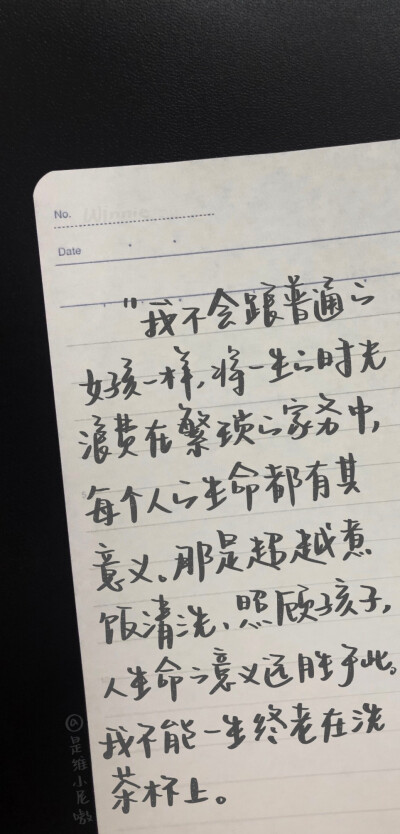 No. Winnie
Date
"我不会跟普通的
女孩一样,将一生的时光
浪费在繁琐的家务中,
每个人的生命都有其
意义。那是超越煮
饭清洗、照顾孩子,
人生命之意义远胜于此。
我不能一生终老在洗
茶杯上。
@是维小尼呦